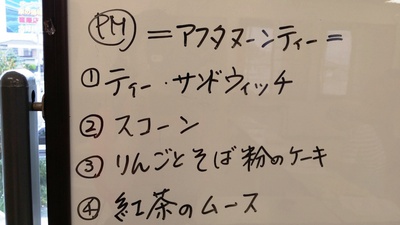 PM =アフタヌーンティー=
① ティー・サンドウィッチ
② スコーン
③ りんごとそば粉のケーキ
④ 紅茶のムース